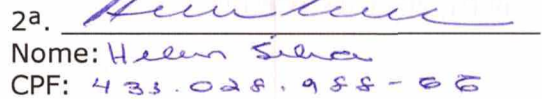 2ª.
Nome: Helen Silva
CPF: 433.028.988-66